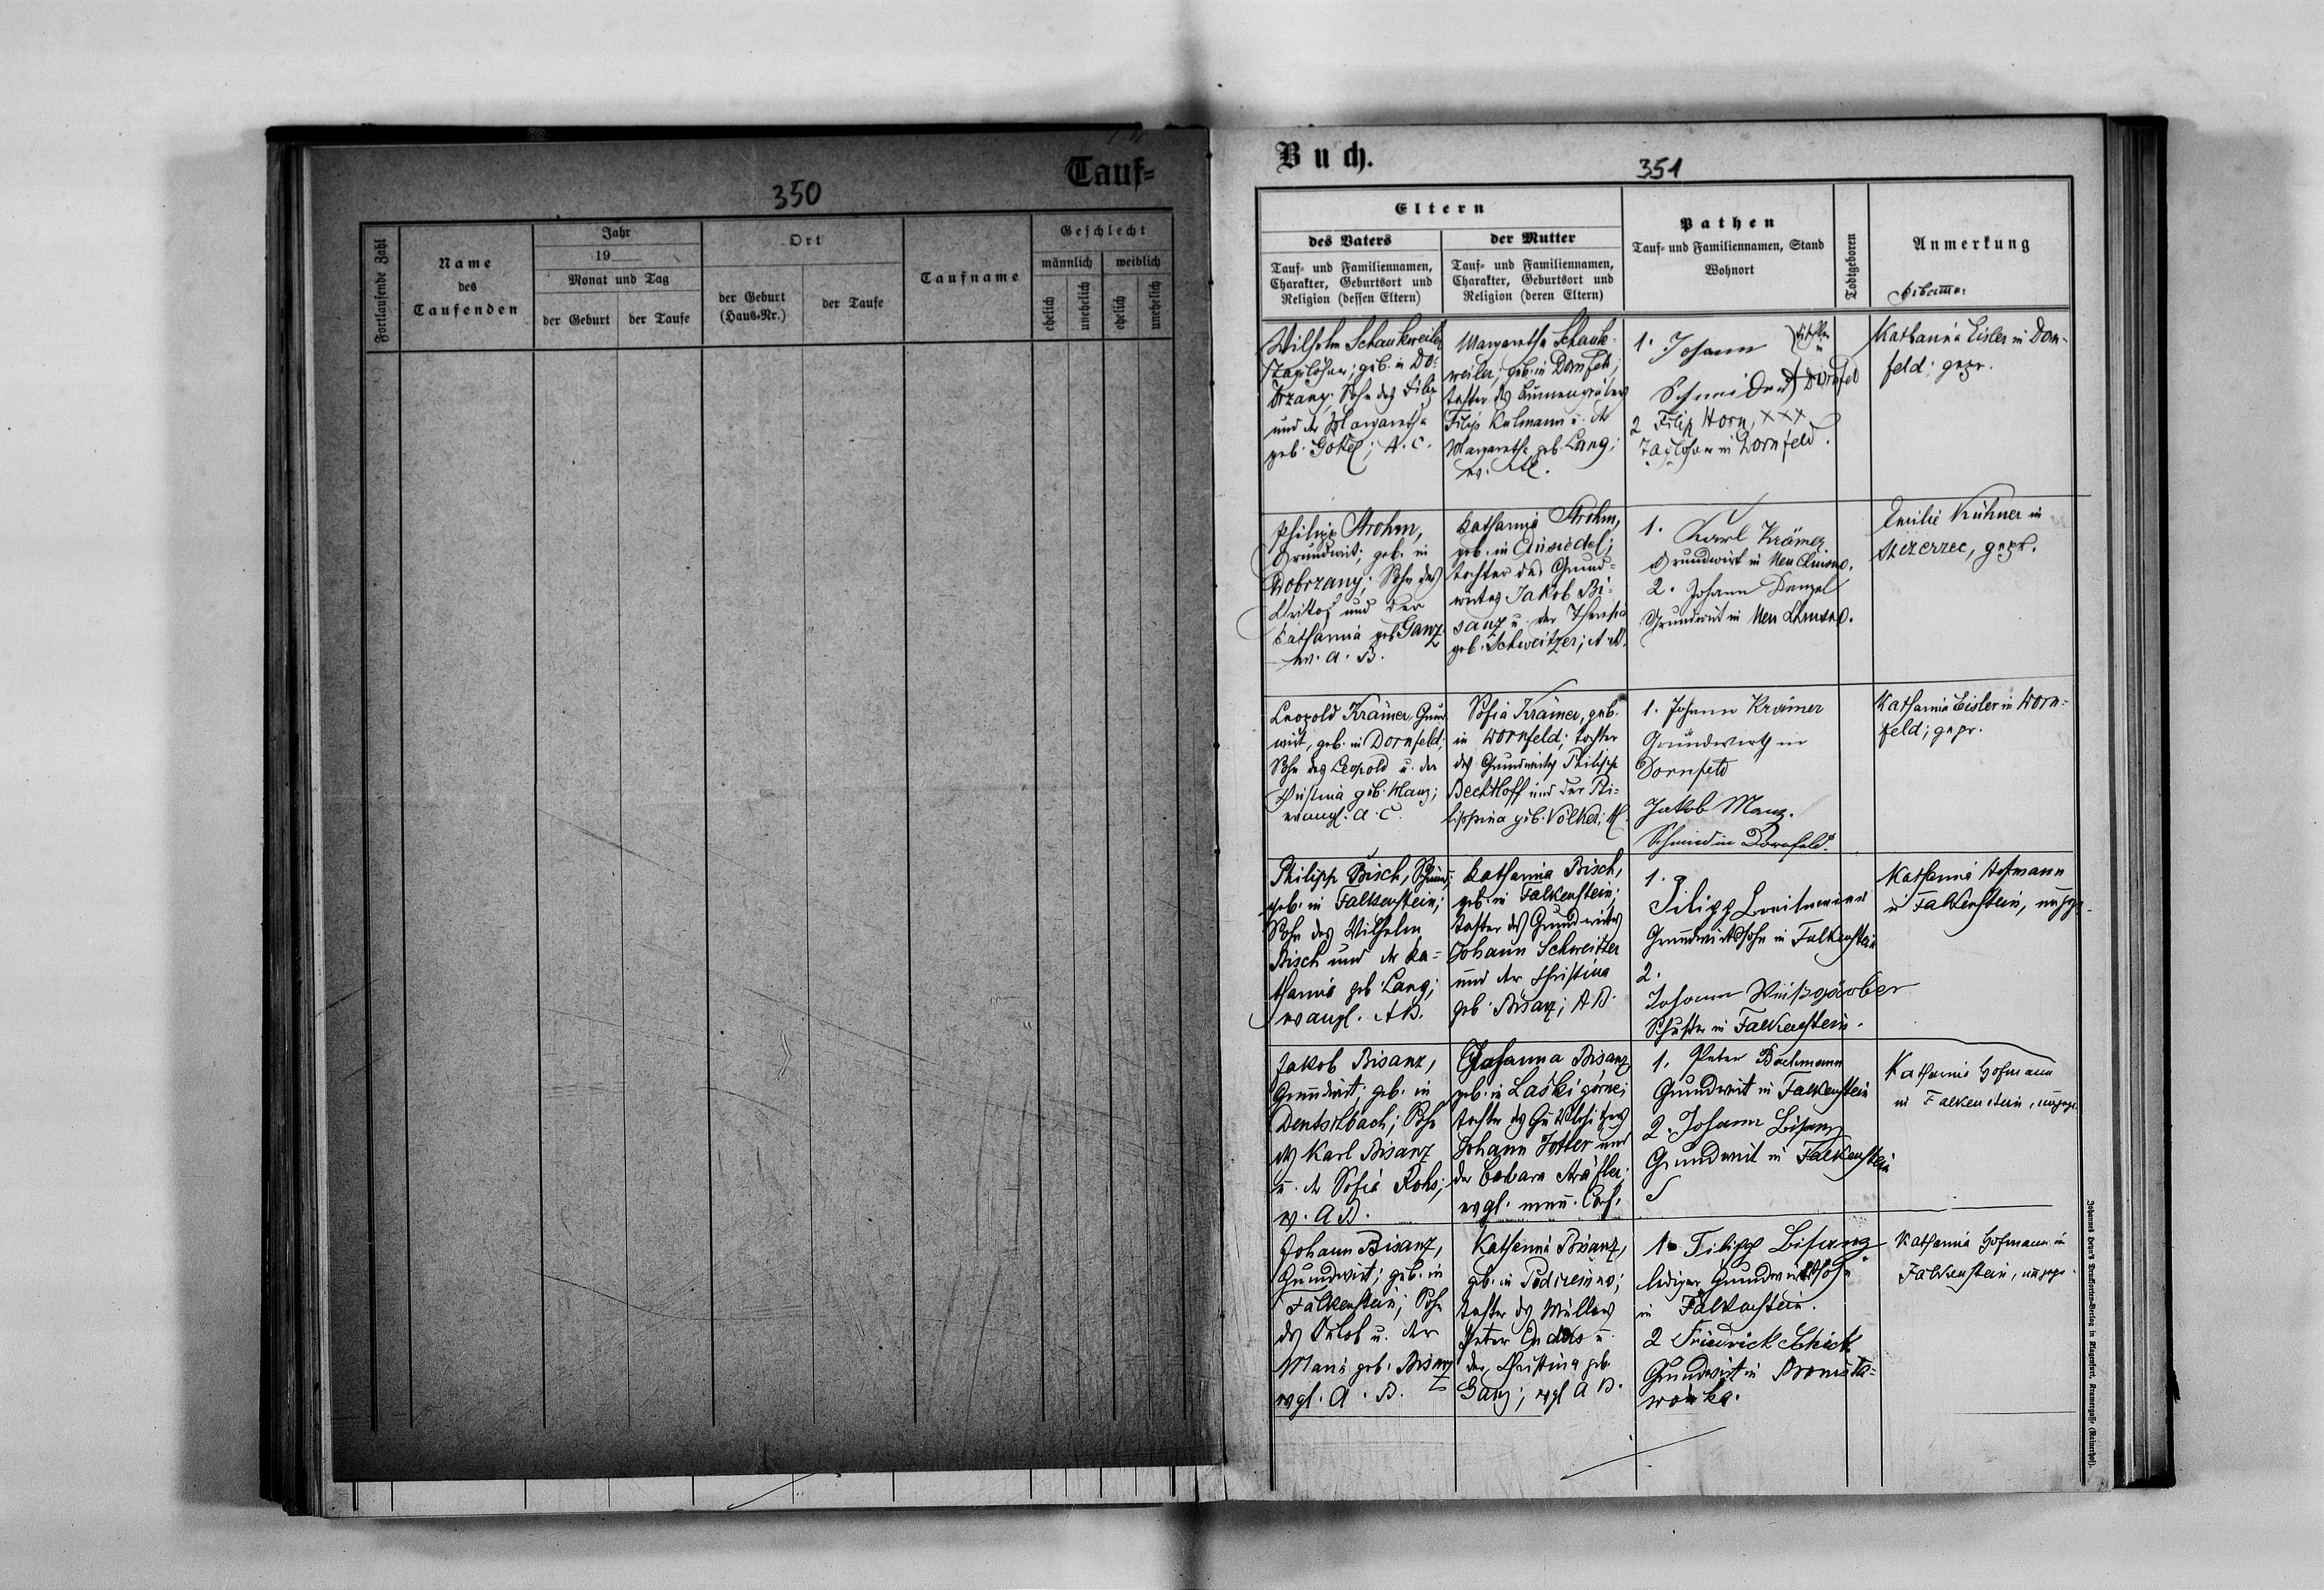 Tauf=
350
Fortlaufende Zahl
Name
des
Taufenden
Jahr
19
Monat und Tag
der Geburt
der Taufe
Ort
der Geburt
(Haus-Nr.)
der Taufe
Taufname
Geschlecht
männlich
weiblich
ehelich
unehelich
ehelich
unehelich
Buch.
351
Eltern
des Vaters
Tauf- und Familiennamen,
Charakter, Geburtsort und
Religion (dessen Eltern)
der Mutter
Tauf- und Familiennamen,
Charakter, Geburtsort und
Religion (deren Eltern)
Pathen
Tauf- und Familiennamen, Stand
Wohnort
Todtgeboren
Anmerkung
Wilhelm Schankweiler
Taglöhner; geb. in Do-
brzany; Sohn des Filip
und der Margaretha
geb. Gottel; A. C.
Margaretha Schank-
weiler, geb. in Dornfeld;
Tochter des Brunnengräbers
Filip Kulmann u. der
Margaretha geb. Lang;
1. Johann
Schneider Dornfeld
2 Filip Horn, XXX
Taglöhner in Dornfeld.
Katharina Eisler in Dorn-
feld; gepr.
Philipp Strohm,
Grundwirt; geb. in
Dobrzany; Sohn des
Kristof und der
Katharina geb. Ganz
ev. A. B.
Katharina Strohm,
geb. in Einsiedel;
Tochter des Grund-
wirtes Jakob Bi-
sanz u. der Theresia
geb. Schweitzer; A. B.
1. Karl Krämer
Grundwirt in Neu Chrusno.
2. Johann Denzel
Grundwirt in Neu Chrusno.
Emilie Kühner in
Szczerzec, gepr.
Leopold Krämer, Grund-
wirt, geb. in Dornfeld;
Sohn des Leopold u. der
Kristina geb. Manz;
evangl. A. C.
Sofia Krämer, geb.
in Dornfeld; Tochter
des Grundwirtes Philipp
Bechtloff und der Fi-
lippina geb. Völker;
1. Johann Krämer
Grundwirth in
Dornfeld
Jakob Manz.
Schmied in Dornfeld.
Katharina Eisler in Dorn=
feld; gepr.
Philipp Bisch, Schmied;
geb. in Falkenstein;
Sohn des Wilhelm
Bisch und der Ka-
tharina geb. Lang;
evangl. A. B.
Katharina Bisch,
geb. in Falkenstein;
Tochter des Grundwirtes
Johann Schweitzer
und der Christina
geb. Bisanz; A. B.
1.
Filipp
Grundwirtssohn in Falkenstein
2.
Johann Weißgärber
Schuster in Falkenstein.
Katharina Hofmann
in Falkenstein, ungepr.
Jakob Bisanz,
Grundwirt; geb. in
Dentschbach; Sohn
des Karl Bisanz
u. der Sofia Rohs;
ev. A. B.
Johanna Bisanz
geb. in Laski górne;
Tochter des Gutsbesitzers
Johann Jotter und
der Barbara
evgl. menn. Conf.
1. Peter Bachmann
Grundwirt in Falkenstein
2. Johann Bisanz
Grundwirt in Falkenstein
Katharina Hofmann
in Falkenstein, ungepr.
Johann Bisanz,
Grundwirt; geb. in
Falkenstein; Sohn
des Jakob u. der
Maria geb. Bisanz
evgl. A. B.
Katharina Bisanz,
geb. in
Tochter des Müllers
Peter Enders u.
der Christina geb.
Ganz; evgl A B.
1. Filipp Bisanz
lediger Grundwirtssohn
in Falkenstein.
2 Friedrich Schick
Grundwirt in Bronisła-
wówka.
Katharina Hofmann in
Falkenstein, ungepr.
Johannes Heyn's Drucksorten-Verlag in Klagenfurt, Kramergasse (Rainerhof).